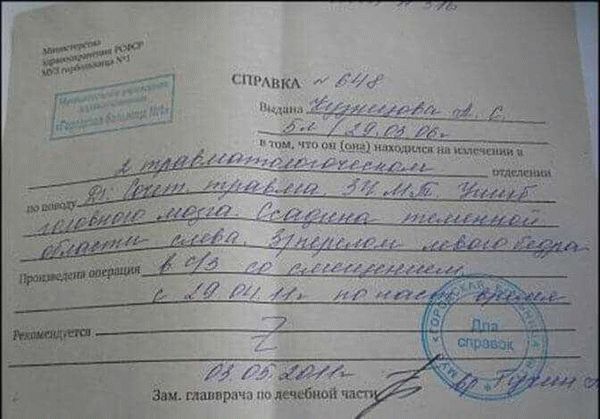 Министерство
здравоохранения РСФСР
МУЗ горбольница №1
«Городская больница №1»
СПРАВКА № 648
Выдана Кузнецова А. С.
5л /29.03.06г
в том, что он (она) находился на излечении в
2 травматологоческом отделении
по поводу Дз: Сочет. травма. ЗЧМТ. Ушиб
головного мозга. Ссадина теменной
области слева. З/перелом левого бедра
Произведена операция в с/з со смещением
с 29.04.11г по наст. время
Рекомендуется Z
03.05.2011г
Зам. главврача по лечебной части вр
Для
справок